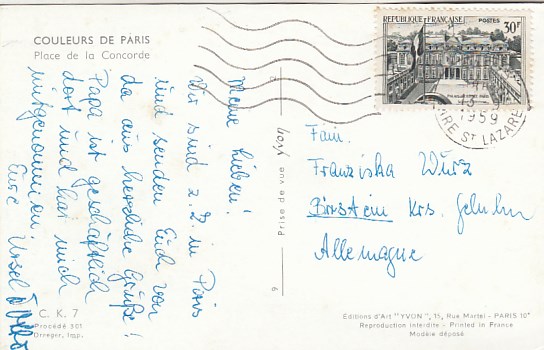 COULEURS DE PARIS
Place de la Concorde
Meine Lieben!
Wir sind z. Z. in Paris
und senden Euch von
da aus herzliche Grüße!
Papa ist geschäftlich
dort und hat mich
mitgenommen.
Eure Ursel
C. K. 7
Procédé 301
Draeger, Imp.
Prise de vue
6
RÉPUBLIQUE FRANÇAISE
POSTES
30F
1959
GARE ST LAZARE
Fam.
Franziska Wurz
Birstein Krs. Gelnhn
Allemagne
Editions d'Art "YVON", 15, Rue Martel - PARIS 10e
Reproduction interdite - Printed in France
Modèle déposé